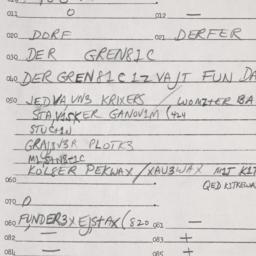 011 O 012 —
020 DORF 021 DERFER
030 DER GREN81C
040 DER GREN81C 1Z VAJT FUN DA
050 JEDVAUNS KRIXERS / WONZTER BA
STAVISKER GANOVIM (424
STUCIN
GRAJEVER PLOTKS
KOLSER PEKWAX / XAU3WAX MIT KIT
060 QED KITREWA
070 O
080 FUNDER3X EJSTAX (820 081 —
082 — 083 +
084 — 085 +